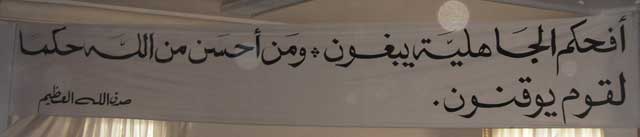 أفحكم الجاهلية يبغون * ومن أحسن من الله حكما
لقوم يوقنون.
صدق الله العظيم